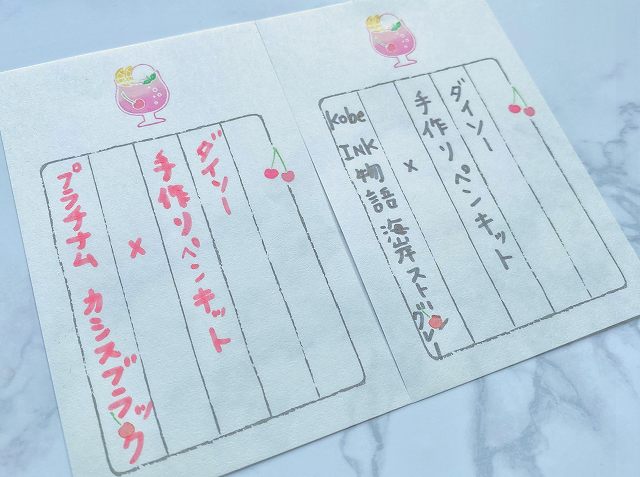 ダイソー
手作りペンキット
×
プラチナム カシスブラック
ダイソー
手作りペンキット
×
kobe INK物語 海岸ストグレー